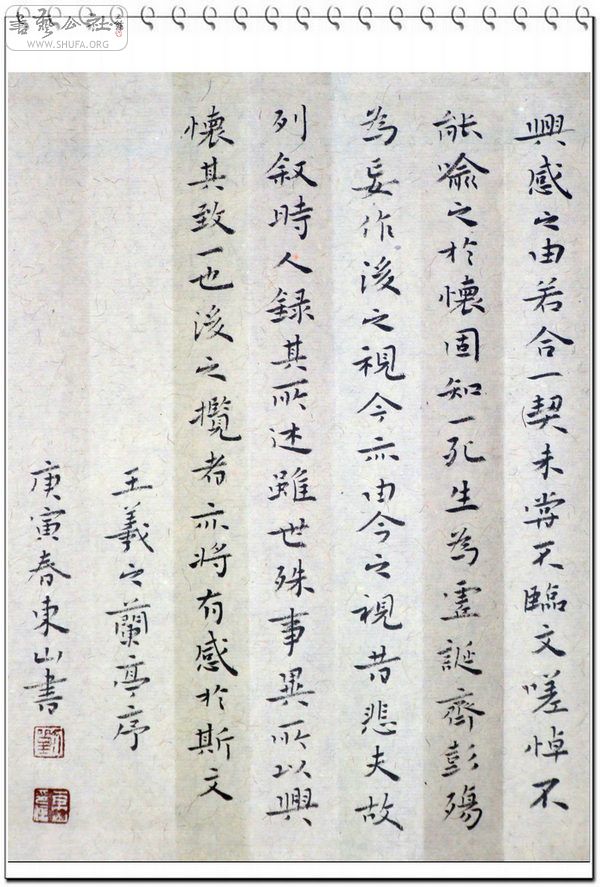 書藝公社
WWW.SHUFA.ORG
興感之由若合一契未嘗不臨文嗟悼不
能喻之於懷固知一死生為虛誕齊彭殤
為妄作後之視今亦由今之視昔悲夫故
列叙時人録其所述雖世殊事異所以興
懷其致一也後之攬者亦將有感於斯文
王羲之蘭亭序
庚寅春東山書
劉